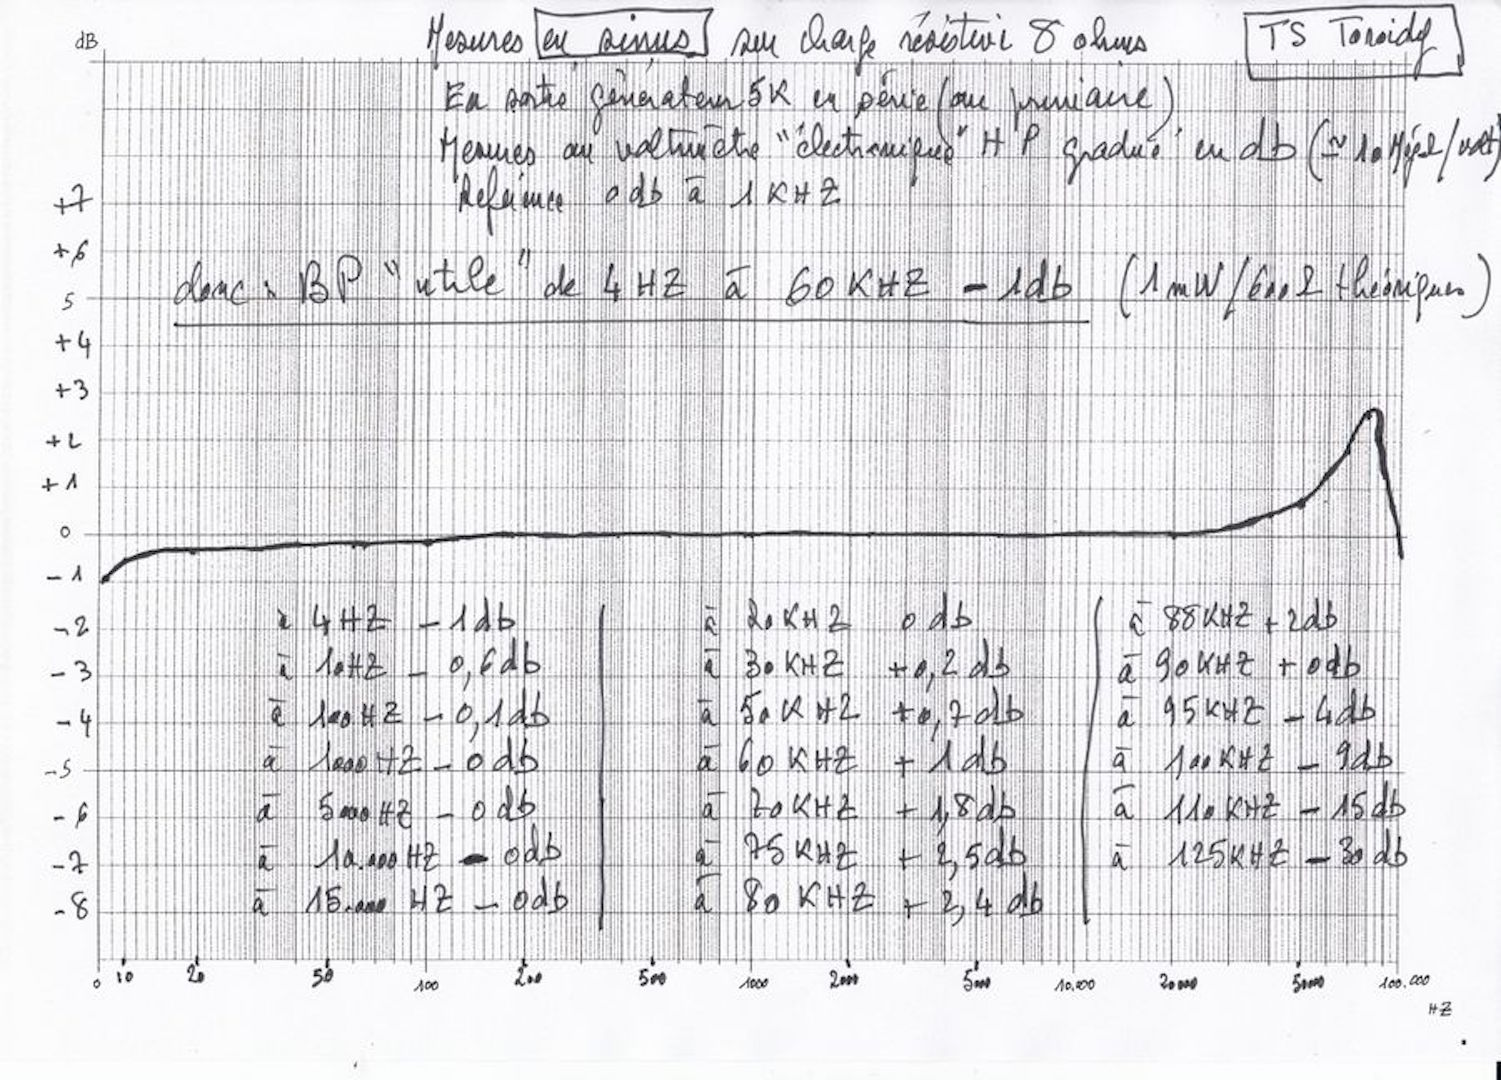 dB
Mesures en sinus sur charge résistive 8 ohms
TS Toroidy
En sortie générateur 5K en série (au primaire)
Mesures au voltmètre "électronique" HP gradué en db (≃ 10 MégΩ/volt)
Référence 0 db à 1 KHZ
donc : BP "utile" de 4 HZ à 60 KHZ - 1db (1 mW/600Ω théoriques)
+7
+6
5
+4
+3
+2
+1
0
-1
-2
-3
-4
-5
-6
-7
-8
à 4HZ - 1db
à 10HZ - 0,6db
à 100HZ - 0,1db
à 1000HZ - 0db
à 5000HZ - 0db
à 10.000HZ - 0db
à 15.000 HZ - 0db
à 20KHZ 0db
à 30KHZ +0,2db
à 50KHZ +0,7db
à 60KHZ +1db
à 70KHZ +1,8db
à 75KHZ +2,5db
à 80 KHZ +2,4db
à 88KHZ +2db
à 90KHZ +0db
à 95KHZ - 4db
à 100KHZ - 9db
à 110KHZ - 15db
à 125KHZ - 30db
0 10 20 50 100 200 500 1000 2000 5000 10.000 20000 50000 100.000
HZ